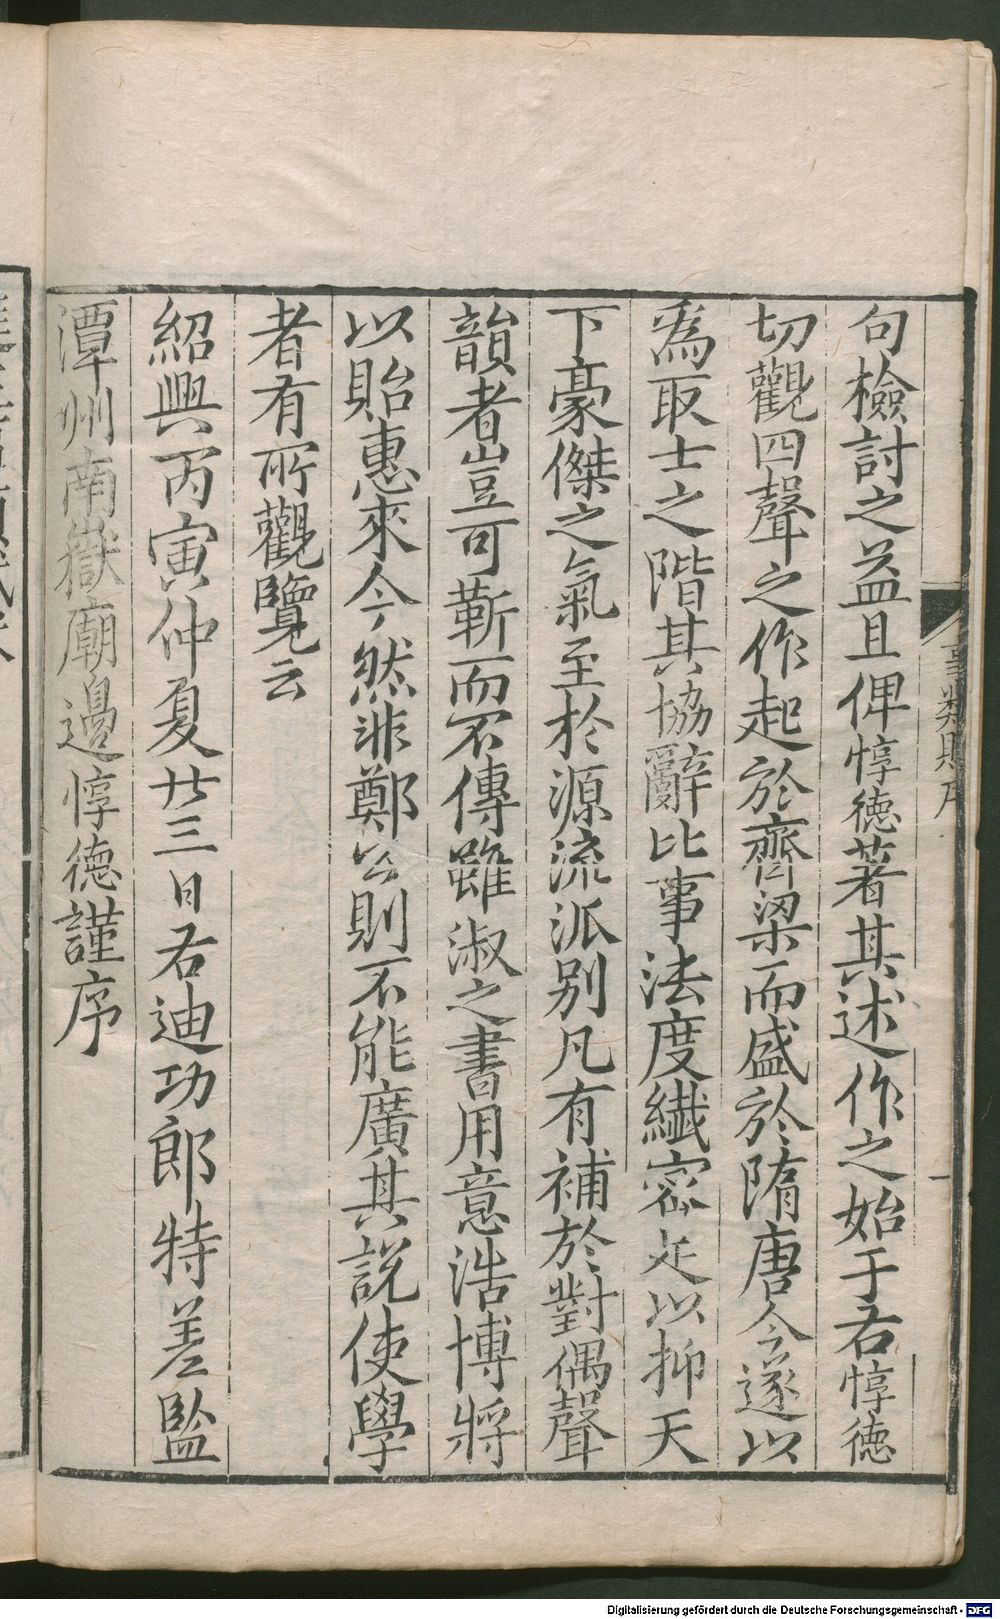 句檢討之益且俾惇德著其述作之始于右惇德
切觀四聲之作起於齊梁而盛於隋唐今遂以
爲取士之階其協辭比事法度纖密足以抑天
下豪傑之氣至於源流派别凡有補於對偶聲
韻者豈可靳而不傳雖淑之書用意浩博將
以貽惠來今然非鄭公則不能廣其說使學
者有所觀覽云
紹興丙寅仲夏廿三日右迪功郎特差監
潭州南嶽廟邉惇德謹序
類賦序
一
Digitalisierung gefördert durch die Deutsche Forschungsgemeinschaft - DFG